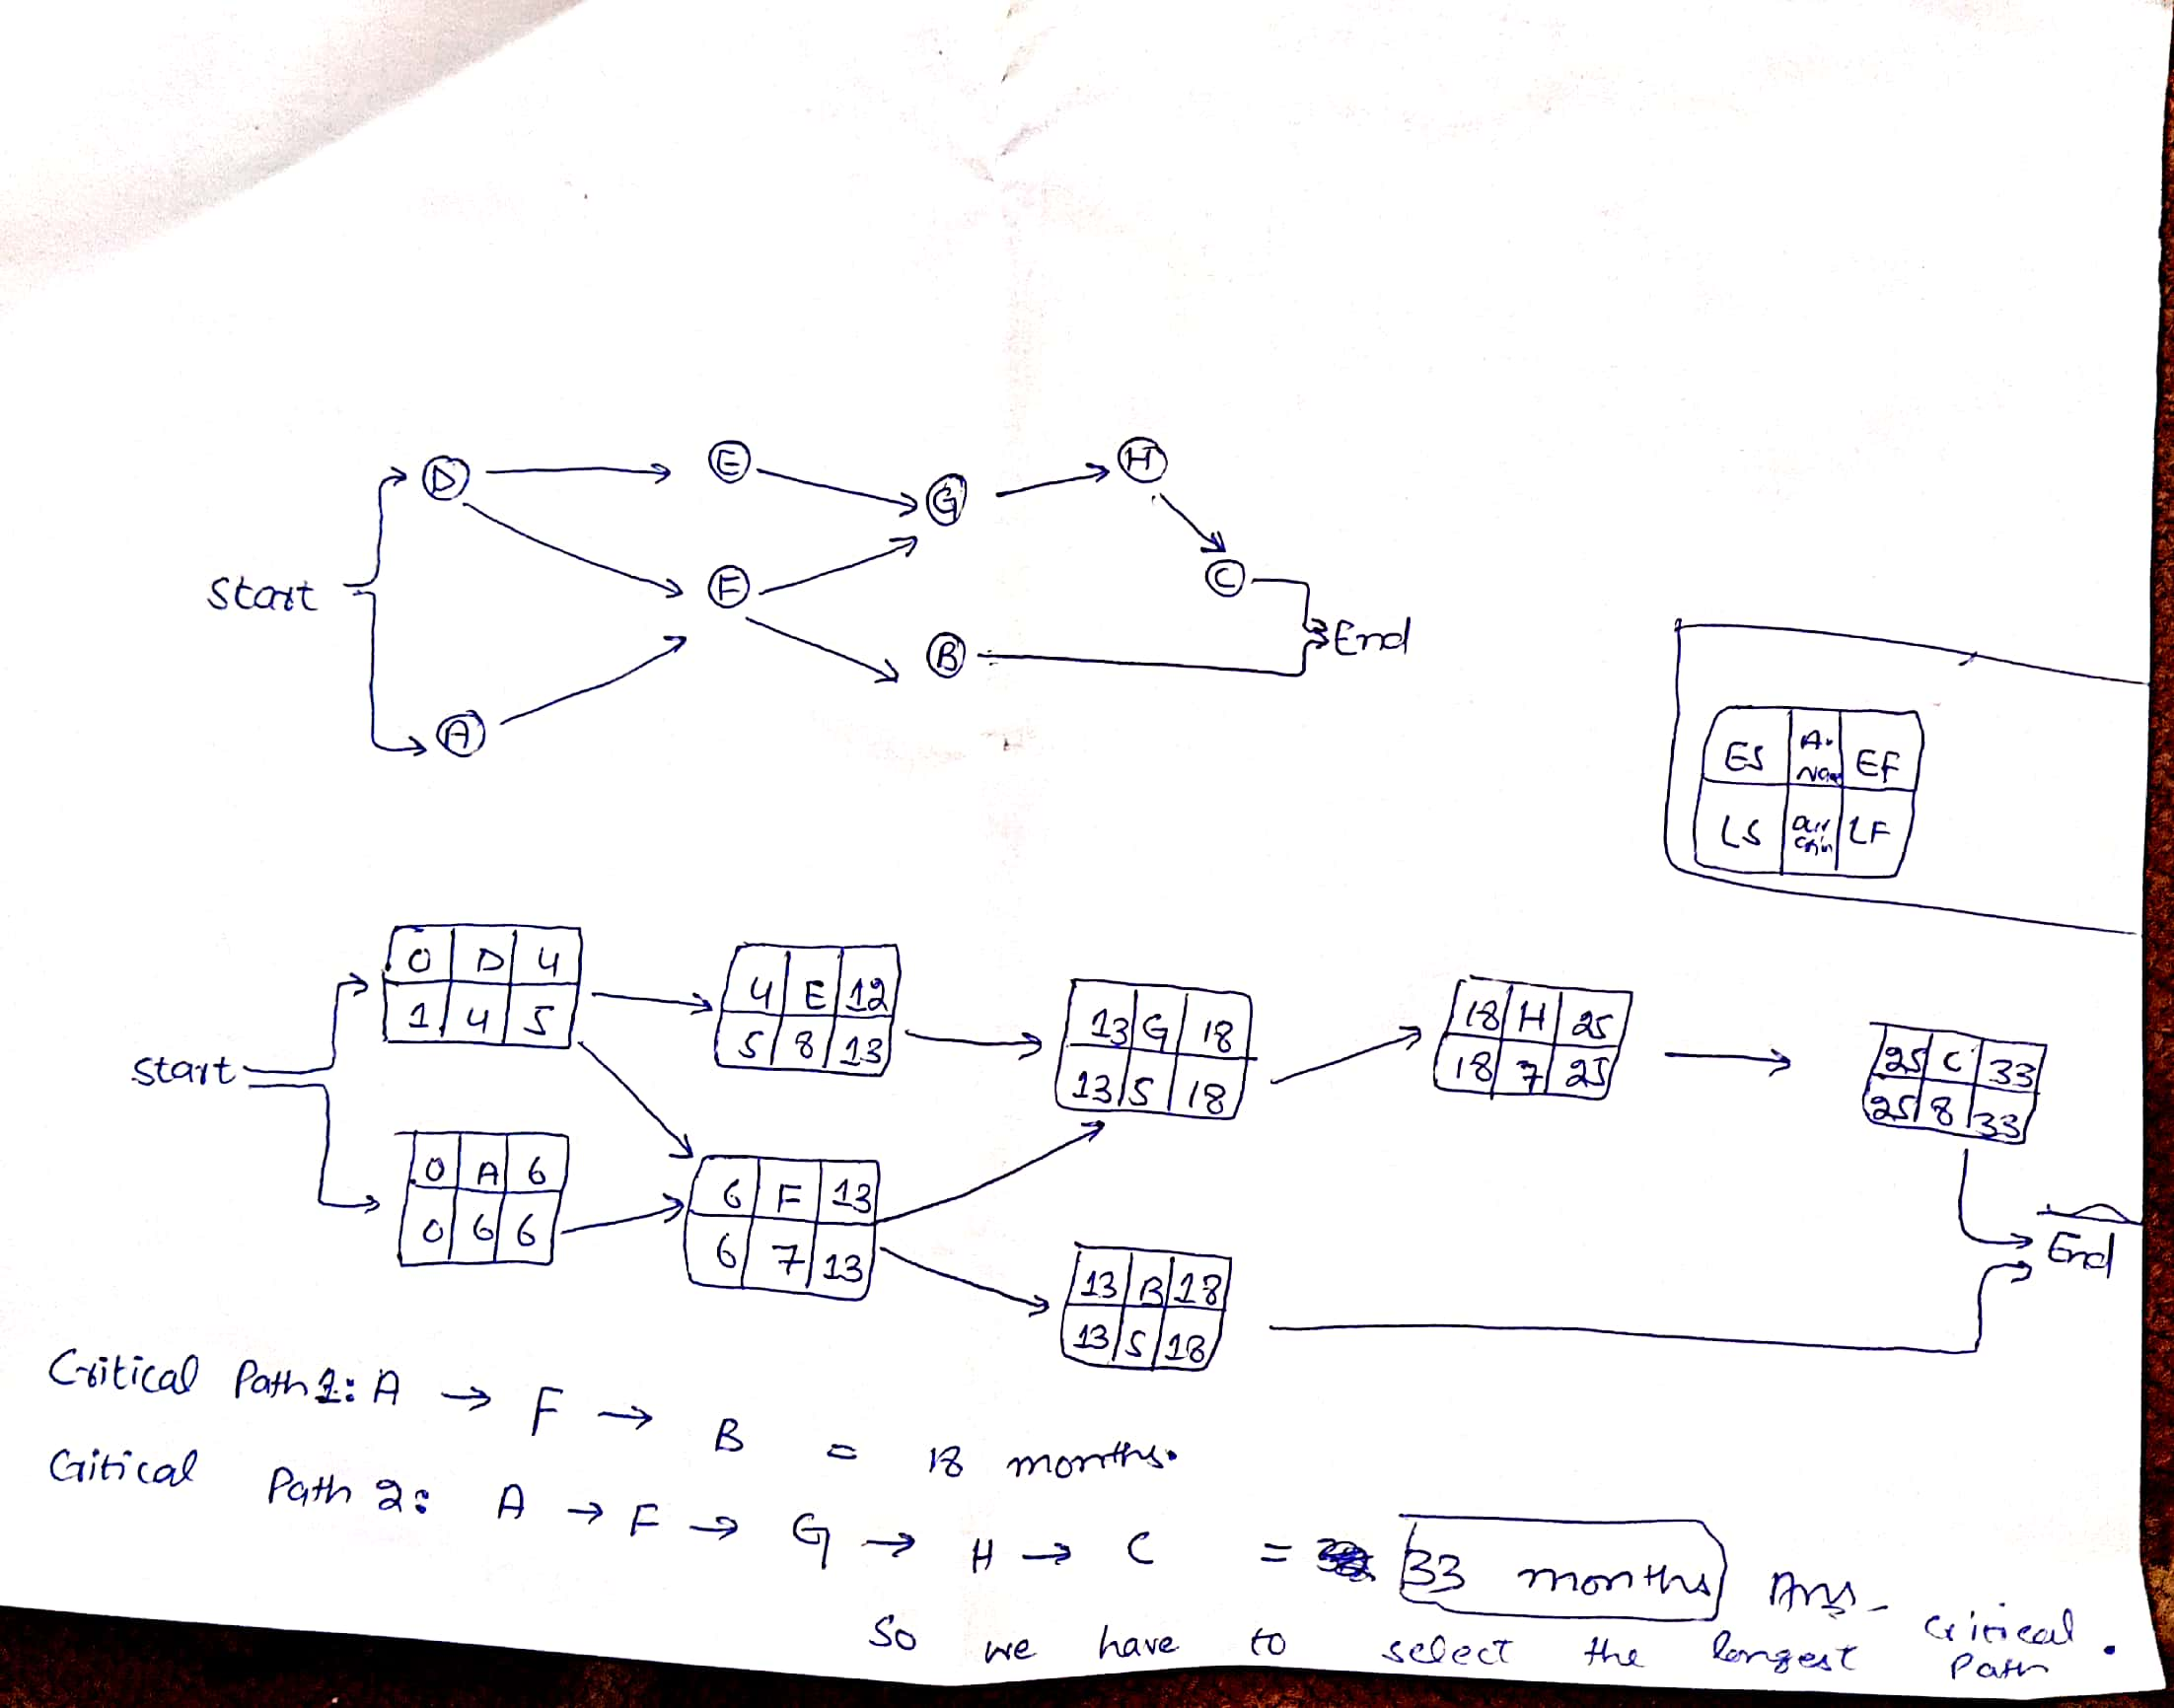 D E G H
Start F C End
A B
ES A. EF
LS LF
0 D 4
1 4 5
4 E 12
5 8 13
13 G 18
13 5 18
18 H 25
18 7 25
25 C 33
25 8 33
Start
0 A 6
0 6 6
6 F 13
6 7 13
13 B 18
13 5 18
End
Critical Path 1: A → F → B = 18 months.
Critical Path 2: A → F → G → H → C = 33 months Ans-
So we have to select the longest critical path.